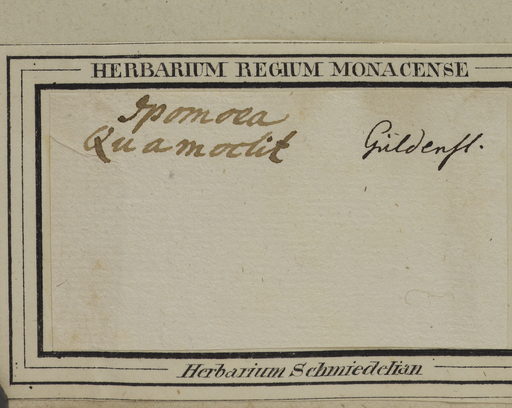 HERBARIUM REGIUM MONACENSE
Ipomoea
Quamoclit Güldenst.
Herbarium Schmiedelian